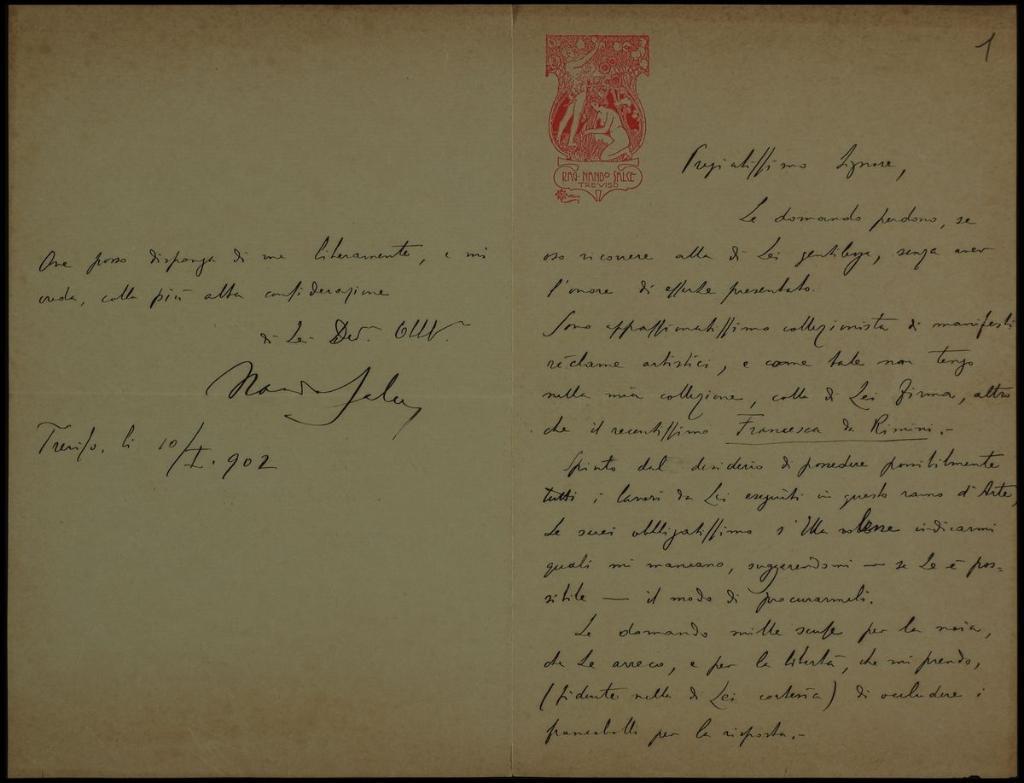 1
RAG. NANDO SALCE
TREVISO
Pregiatissimo Signore,
Le domando perdono, se
oso ricorrere alla di Lei gentilezza, senza aver
l'onore di esserLe presentato.
Sono appassionatissimo collezionista di manifesti
réclame artistici, e come tale non tengo
nella mia collezione, colla di Lei firma, altro
che il recentissimo Francesca da Rimini.-
Spinto dal desiderio di possedere possibilmente
tutti i lavori da Lei eseguiti in questo ramo d'Arte,
Le sarei obbligatissimo s'Ella volesse indicarmi
quali mi mancano, suggerendomi — se Le è pos=
sibile — il modo di procurarmeli.
Le domando mille scuse per la noia,
che Le arreco, e per la libertà, che mi prendo,
(fidente nella di Lei cortesia) di accludere i
francobolli per la risposta.-
Ove posso disponga di me liberamente, e mi
creda, colla più alta considerazione
di Lei Dev.
Nando Salce
Treviso, li 10/I. 902